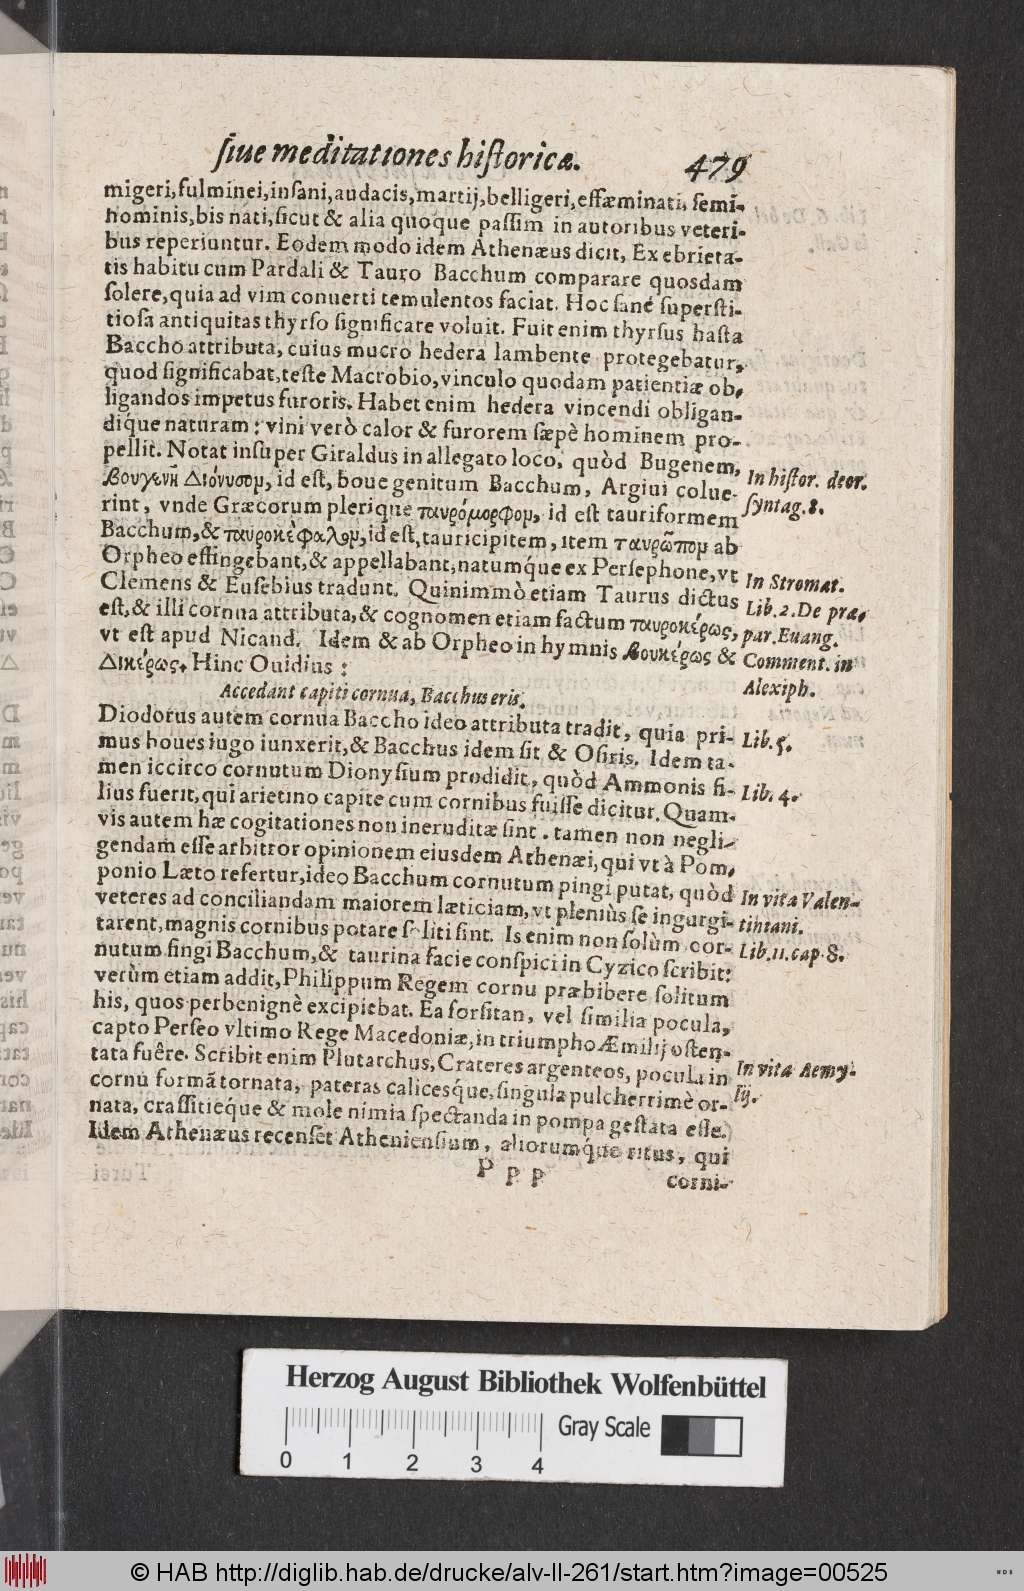 ſiue meditationes hiſtoricæ. 479
migeri, fulminei, inſani, audacis, martij, belligeri, effæminati, ſemi-
hominis, bis nati, ſicut & alia quoque paſſim in autoribus veteri-
bus reperiuntur. Eodem modo idem Athenæus dicit, Ex ebrieta-
tis habitu cum Pardali & Tauro Bacchum comparare quosdam
ſolere, quia ad vim conuerti temulentos faciat. Hoc ſanè ſuperſti-
tioſa antiquitas thyrſo ſignificare voluit. Fuit enim thyrſus haſta
Baccho attributa, cuius mucro hedera lambente protegebatur,
quod ſignificabat, teſte Macrobio, vinculo quodam patientiæ ob-
ligandos impetus furoris. Habet enim hedera vincendi obligan-
díque naturam: vini verò calor & furorem ſæpè hominem pro-
pellit. Notat inſuper Giraldus in allegato loco, quòd Bugenem,
βουγενῆ Διόνυσομ, id eſt, boue genitum Bacchum, Argiui colue-
In hiſtor. deor.
rint, vnde Græcorum plerique ταυρόμορφομ, id eſt tauriformem
ſyntag. 8.
Bacchum, & ταυροκέφαλομ, id eſt, tauricipitem, item ταυρῶπομ ab
Orpheo effingebant, & appellabant, natumq́ue ex Perſephone, vt
Clemens & Euſebius tradunt. Quinimmò etiam Taurus dictus
In Stromat.
eſt, & illi cornua attributa, & cognomen etiam factum ταυροκέρως,
Lib. 2. De præ-
vt eſt apud Nicand. Idem & ab Orpheo in hymnis βουκέρως &
par. Euang.
Δικέρως. Hinc Ouidius:
Comment. in
Alexiph.
Accedant capiti cornua, Bacchus eris.
Diodorus autem cornua Baccho ideo attributa tradit, quia pri-
Lib. 5.
mus boues iugo iunxerit, & Bacchus idem ſit & Oſiris. Idem ta-
men iccirco cornutum Dionyſium prodidit, quòd Ammonis fi-
Lib. 4.
lius fuerit, qui arietino capite cum cornibus fuiſſe dicitur. Quam-
vis autem hæ cogitationes non ineruditæ ſint. tamen non negli-
gendam eſſe arbitror opinionem eiusdem Athenæi, qui vt à Pom-
ponio Læto refertur, ideo Bacchum cornutum pingi putat, quòd
In vita Valen-
veteres ad conciliandam maiorem læticiam, vt pleniùs ſe ingurgi-
tiniani.
tarent, magnis cornibus potare ſoliti ſint. Is enim non ſolùm cor-
Lib. 11. cap. 8.
nutum fingi Bacchum, & taurina facie conſpici in Cyzico ſcribit:
verùm etiam addit, Philippum Regem cornu præbibere ſolitum
his, quos perbenignè excipiebat. Ea forſitan, vel ſimilia pocula,
capto Perſeo vltimo Rege Macedoniæ, in triumpho Æmilij oſten-
tata fuêre. Scribit enim Plutarchus, Crateres argenteos, pocula in
In vita Aemy-
cornu formã tornata, pateras calicesq́ue, ſingula pulcherrimè or-
lij.
nata, craſſitieq́ue & mole nimia ſpectanda in pompa geſtata eſſe.
Idem Athenæus recenſet Athenienſium, aliorumq́ue ritus, qui
P p p corni-
Herzog August Bibliothek Wolfenbüttel
Gray Scale
0 1 2 3 4
© HAB http://diglib.hab.de/drucke/alv-ll-261/start.htm?image=00525